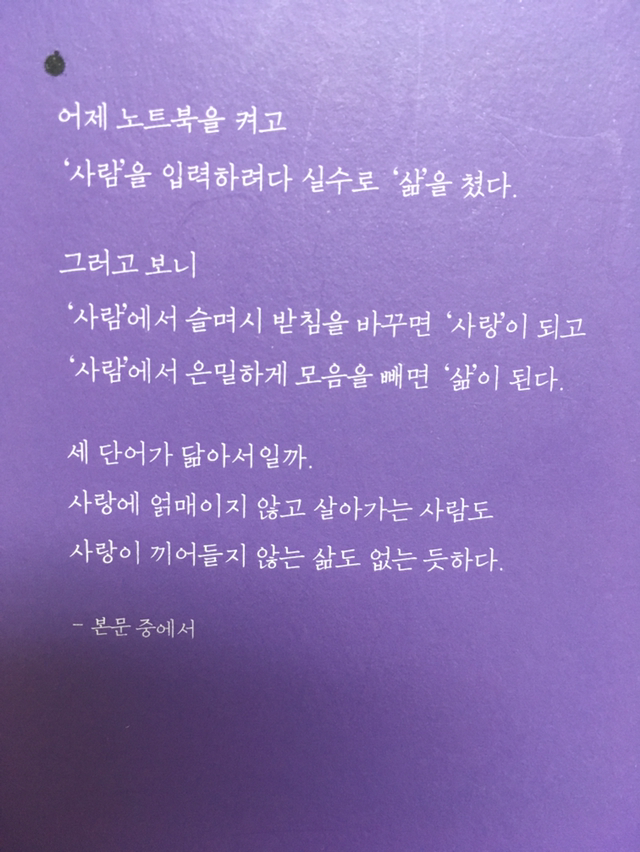 어제 노트북을 켜고
‘사람’을 입력하려다 실수로 ‘삶’을 쳤다.
그러고 보니
‘사람’에서 슬며시 받침을 바꾸면 ‘사랑’이 되고
‘사람’에서 은밀하게 모음을 빼면 ‘삶’이 된다.
세 단어가 닮아서일까.
사랑에 얽매이지 않고 살아가는 사람도
사랑이 끼어들지 않는 삶도 없는 듯하다.
- 본문 중에서